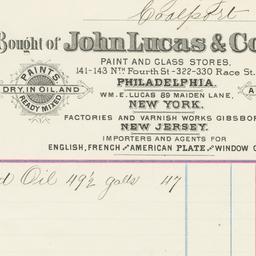 Coalport
Bought of John Lucas & Co
PAINT AND GLASS STORES,
141-143 Nth Fourth St - 322-330 Race St.
PHILADELPHIA.
WM. E. LUCAS 89 MAIDEN LANE,
NEW YORK.
FACTORIES AND VARNISH WORKS GIBSBOR
NEW JERSEY.
IMPORTERS AND AGENTS FOR
ENGLISH, FRENCH AND AMERICAN PLATE AND WINDOW G
PAINTS
DRY, IN OIL, AND
READY MIXED
A
d Oil 49½ galls 47